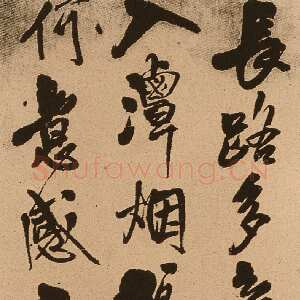 長路多
入瘴烟
何意感
Shufawang.CN